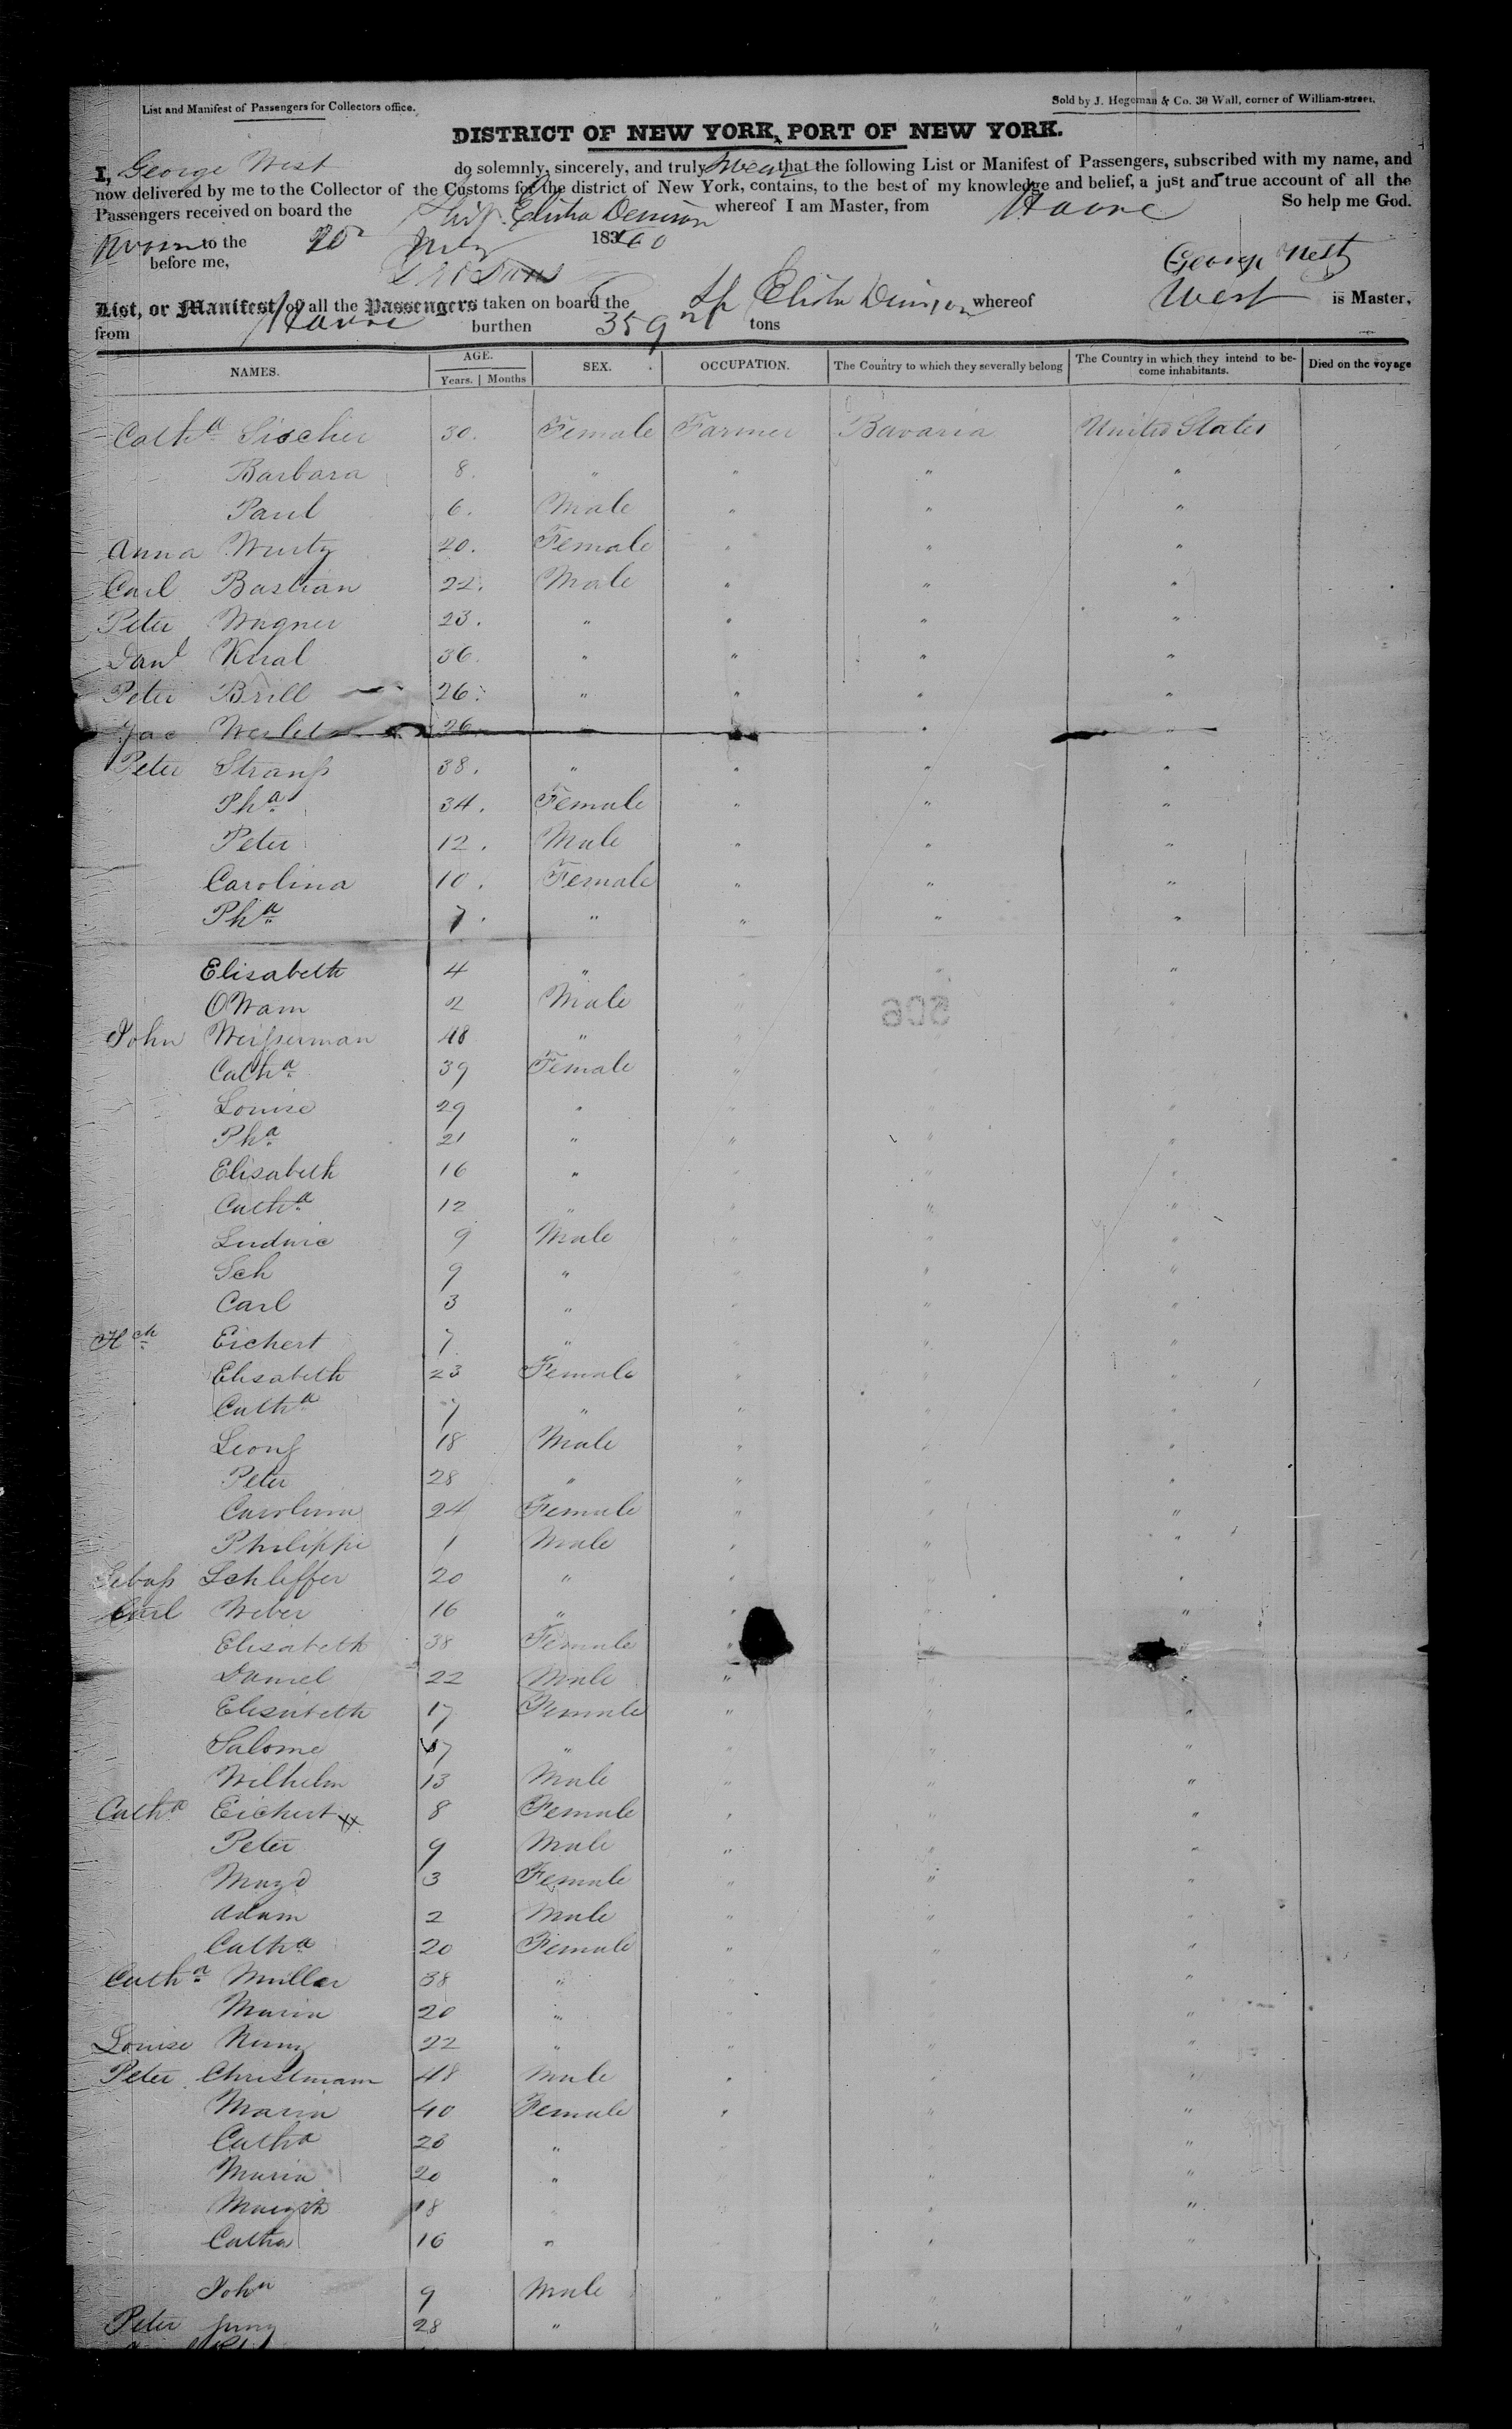 List and Manifest of Passengers for Collectors office.
Sold by J. Hegeman & Co. 30 Wall, corner of William-street.
DISTRICT OF NEW YORK, PORT OF NEW YORK.
I, George West do solemnly, sincerely, and truly swear that the following List or Manifest of Passengers, subscribed with my name, and
now delivered by me to the Collector of the Customs for the district of New York, contains, to the best of my knowledge and belief, a just and true account of all the
Passengers received on board the Ship Elisha Denison whereof I am Master, from Havre So help me God.
Sworn to the 20 183
before me, George West
List, or Manifest, of all the Passengers taken on board the Sp Elisha Denison whereof West is Master,
from Havre burthen 359 tons
NAMES. AGE. SEX. OCCUPATION. The Country to which they severally belong The Country in which they intend to be- Died on the voyage
Years. | Months come inhabitants.
Cath.a Fischer 30. Female Farmer Bavaria United States
Barbara 8. " " " "
Paul 6. Male " " "
Anna Wurtz 20. Female " " "
Carl Bastian 22. Male " " "
Peter Wagner 23. " " " "
Danl 36. " " " "
Peter Brill 26. " " " "
Jac 26 " " " "
Peter Strauß 38. " " " "
Ph.a 34. Female " " "
Peter 12. Male " " "
Carolina 10. Female " " "
Ph.a 7. " " " "
Elisabeth 4 " " "
2 Male "
606
John Weißerman 48 " "
Cath.a 39 Female "
Louise 29 " "
Ph.a 21 " " " "
Elisabeth 16 " " " "
Cath.a 12 " " " "
Ludwic 9 Male " " "
Sch 9 " " " "
Carl 3 " " " "
H.ch Eichert 7 " " " "
Elisabeth 23 Female " " "
Cath.a 7 " " " "
18 Male " " "
Peter 28 " " " "
Carolina 24 Female " " "
Philippe 1 Male " " "
Sebaß Schleffer 20 " " " "
Carl Weber 16 " " "
Elisabeth 38 Female " "
Daniel 22 Male " " "
Elisabeth 17 Female " " "
Salome 7 " " " "
Wilhelm 13 Male " " "
Cath.a Eichert 8 Female " " "
Peter 9 Male " " "
Magd 3 Female " " "
Adam 2 Male " " "
Cath.a 20 Female " " "
Cath.a Muller 38 " " "
Maria 20 " "
Louise 22 " " "
Peter Christmann 48 Male " " "
Maria 40 Female " " "
Catha 28 " "
Maria 20 " " "
18 " "
Catha 16 " " "
John 9 Male " " "
Peter Jung 28 " " "